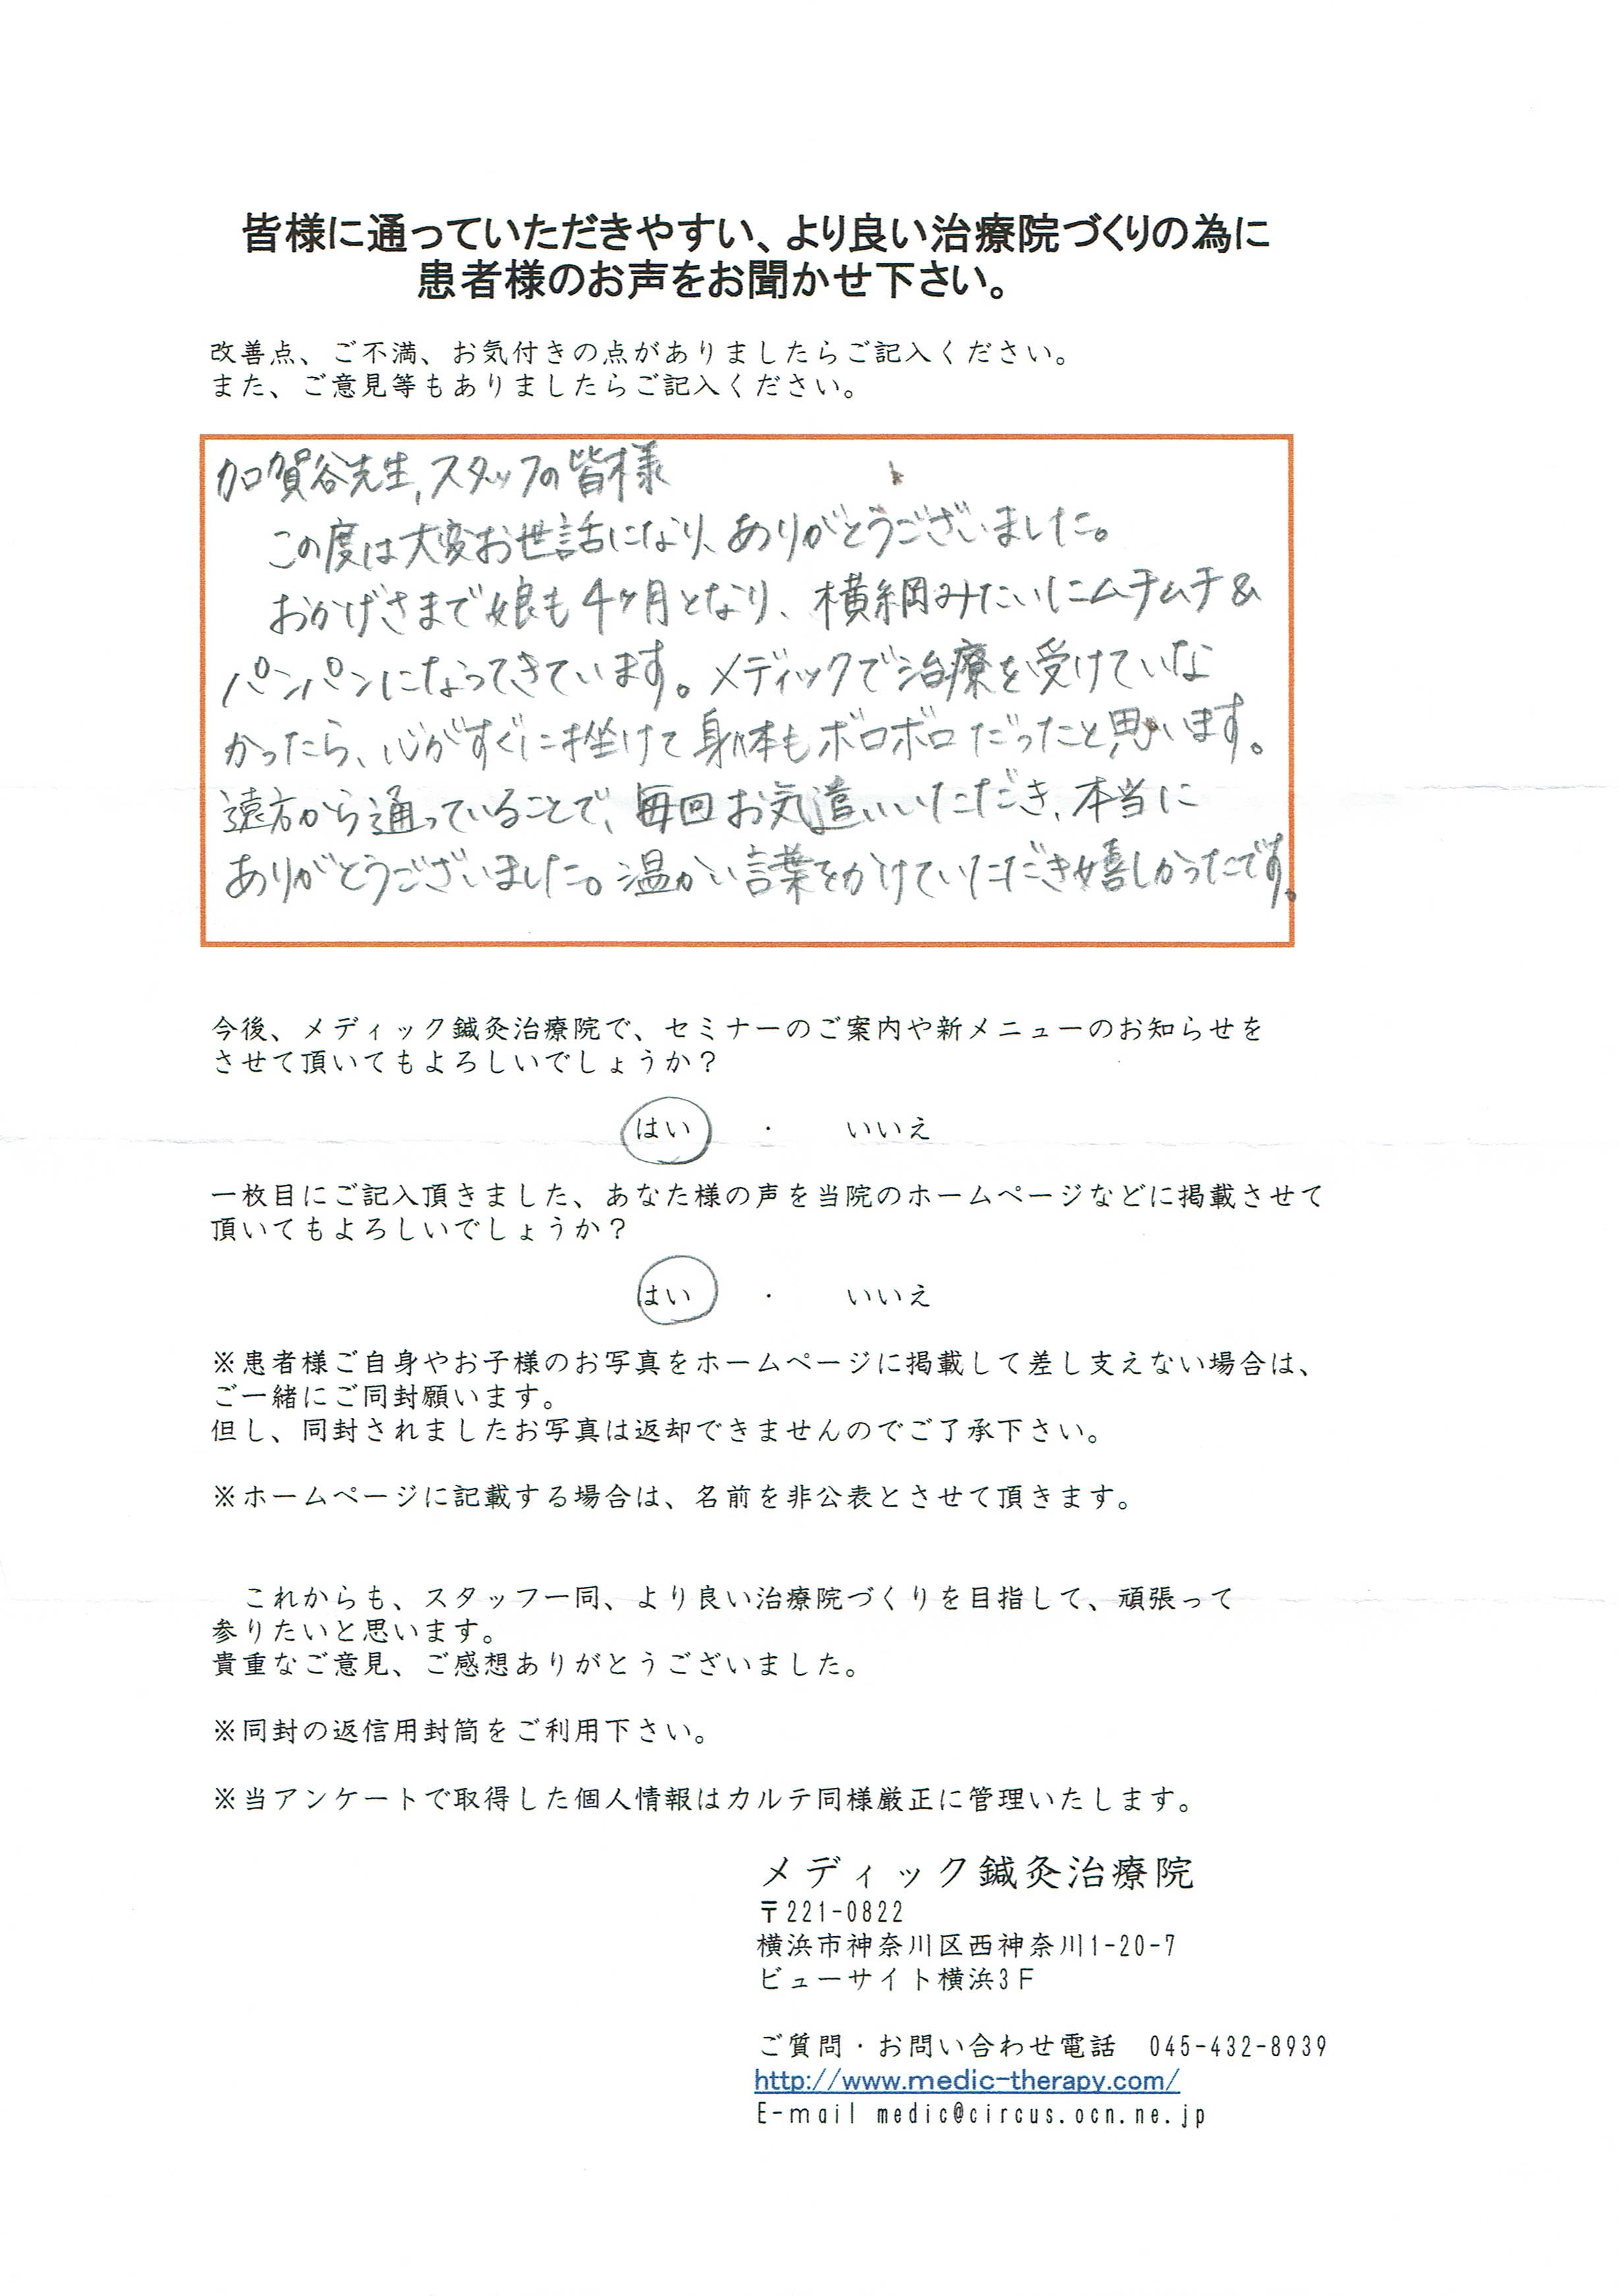 皆様に通っていただきやすい、より良い治療院づくりの為に
患者様のお声をお聞かせ下さい。
改善点、ご不満、お気付きの点がありましたらご記入ください。
また、ご意見等もありましたらご記入ください。
加賀谷先生,スタッフの皆様
この度は大変お世話になり、ありがとうございました。
おかげさまで娘も4ヶ月となり、横綱みたいにムチムチ&
パンパンになってきています。メディックで治療を受けていな
かったら、心がすぐに挫けて身体もボロボロだったと思います。
遠方から通っていることで、毎回お気遣いいただき、本当に
ありがとうございました。温かい言葉をかけていただき嬉しかったです。
今後、メディック鍼灸治療院で、セミナーのご案内や新メニューのお知らせを
させて頂いてもよろしいでしょうか?
はい ・ いいえ
一枚目にご記入頂きました、あなた様の声を当院のホームページなどに掲載させて
頂いてもよろしいでしょうか?
はい ・ いいえ
※患者様ご自身やお子様のお写真をホームページに掲載して差し支えない場合は、
ご一緒にご同封願います。
但し、同封されましたお写真は返却できませんのでご了承下さい。
※ホームページに記載する場合は、名前を非公表とさせて頂きます。
これからも、スタッフ一同、より良い治療院づくりを目指して、頑張って
参りたいと思います。
貴重なご意見、ご感想ありがとうございました。
※同封の返信用封筒をご利用下さい。
※当アンケートで取得した個人情報はカルテ同様厳正に管理いたします。
メディック鍼灸治療院
〒221-0822
横浜市神奈川区西神奈川1-20-7
ビューサイト横浜3F
ご質問・お問い合わせ電話 045-432-8939
http://www.medic-therapy.com/
E-mail medic@circus.ocn.ne.jp